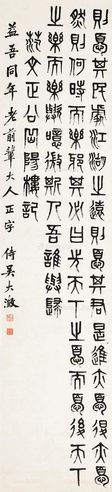 則憂其民處江湖之遠則憂其君是進亦憂退亦憂
然則何時而樂耶其必曰先天下之憂而憂後天下
之樂而樂歟噫微斯人吾誰與歸
范文正公岳陽樓記
益吾同年老前輩大人正字 侍吴大澂